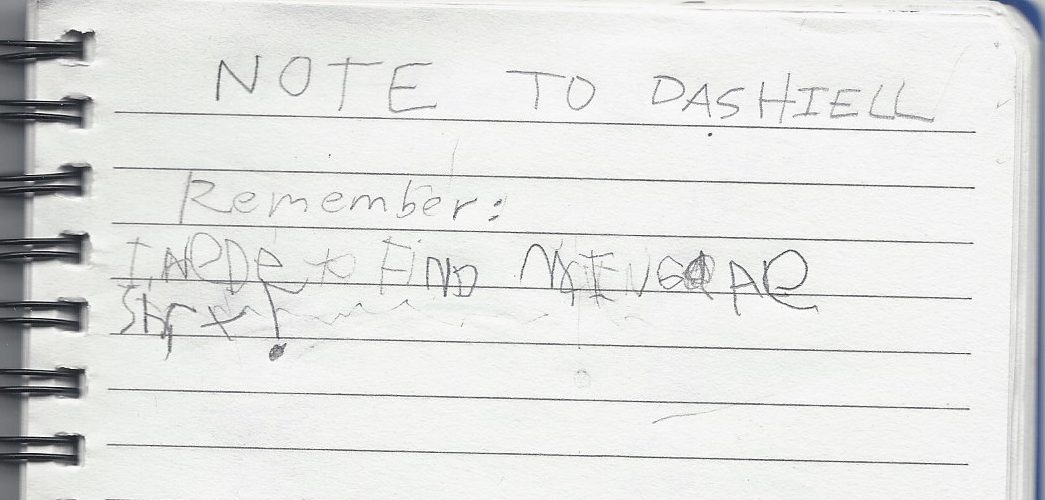 NOTE TO DASHIELL
Remember:
I NeDe to FiND
Shrt!